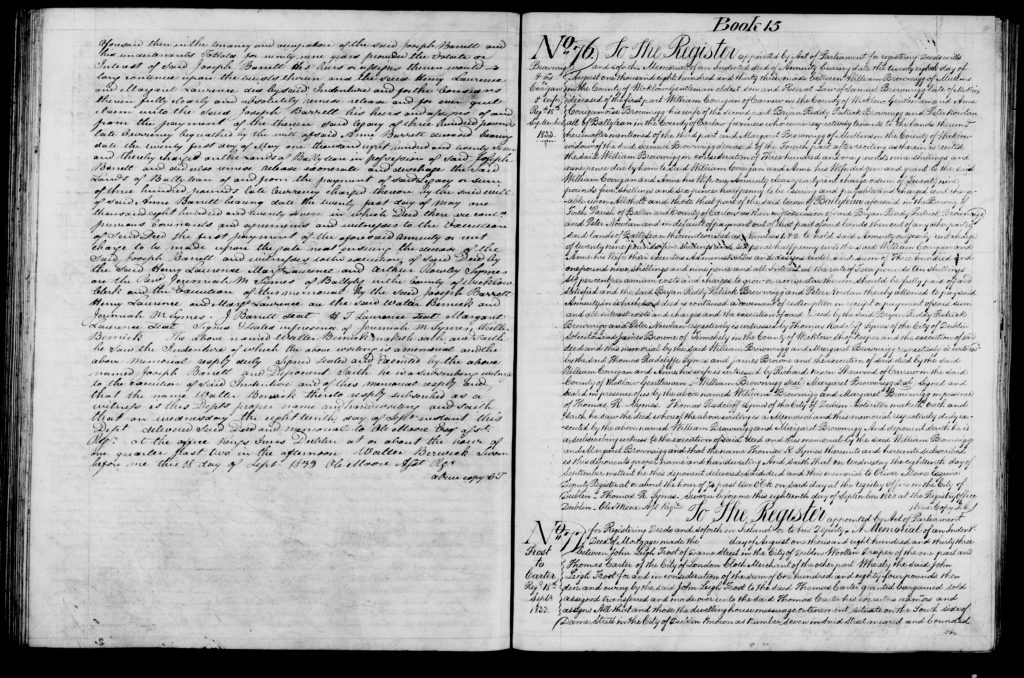 aforesaid then in the tenancy and occupation of the said Joseph Barrett and
his undertenants To hold for ninety nine years provided the Estate or
Interest of Said Joseph Barrett his heirs or assigns therein would so
long continue upon the trusts therein and the said Henry Laurence
and Margaret Laurence did by said Indenture and for the Consons
therein fully clearly and absolutely remise release and for ever quit
claim unto the said Joseph Barrett his heirs and assigns of and
from the payment of the therein said legacy of three hundred pounds
late Currency bequeathed by the will of said Anne Barrett deceased bearing
date the twenty first day of May one thousand eight hundred and twenty seven
and thereby charged on the lands of Ballyhan in possession of said Joseph
Barrett and did also remise release exonerate and discharge the said
Lands of Ballyhan of and from the payment of said legacy or sum
of three hundred pounds late Currency charged thereon by the said will
of said Anne Barrett bearing date the twenty first day of May one
thousand eight hundred and twenty seven in which Deed there are cont
previous Covenants and agreements and witnesses to the Execution
of said Deed the first payment of the aforesaid annuity or rent
charge to be made upon the gale days ensuing the decease of the
Said Joseph Barrett and witnesses to the execution of said Deed by
the said Henry Laurence Mary Laurence and Arthur Rowley Symes
are the Revd Jeremiah M Symes of Ballybeg in the County of Wicklow
Clerk and the Execution of this memorial by the said Joseph Barrett
Henry Laurence and Marg Laurence are the said Walter Berwick and
Jeremiah M Symes. J Barrett Seal H J Laurence Seal Margaret
Laurence Seal Signed & Sealed in presence of Jeremiah M Symes, Walter
Berwick The above named Walter Berwick maketh oath and saith
he saw the Indenture of which the above writing is a memorial and the
above memorial resply duly signed sealed and executed by the above
named Joseph Barrett and Deponent saith he is a subscribing witness
to the execution of said Indenture and of this memorial resply and
that the name Walter Berwick thereto resply subscribed as a
witness is this Depts proper name and handwriting and saith
that on wednesday the eighteenth day of Sept instant this
Dept delivered said Deed and memorial to Ole Moore Esqr Asst
Regr at the office Kings Inns Dublin at or about the hour of
one quarter past two in the afternoon Walter Berwick Sworn
before me this 18 day of Sept 1833 Ole Moore Asst Regr
a true copy
Book 15
No. 76. To The Register appointed by Act of Parliament for registering Deeds wills
Brownrigg and so forth a Memorial of an Indented deed of Annuity bearing date the twenty eighth day of
& Ors August one thousand eight hundred and thirty three made between William Brownrigg of Mullins
Corrigan in the County of Wicklow Gentleman eldest son and Heir at Law of Samuel Brownrigg late of Mullins
& wife deceased of the first part William Corrigan of Carnew in the County of Wicklow Gentleman and Anne
Regd 18th Corrigan orse Brownrigg his wife of the second part Bryan Reddy Patrick Brownrigg and Peter Nowlan
September all of Ballyhan in the County of Carlow farmers who were respectively tenants to the lands and
1833. hereinafter mentioned of the third part and Margaret Brownrigg of Mullins in the County of Wicklow
widow of the said Samuel Brownrigg deceased of the Fourth part after reciting as therein is recited
the said William Brownrigg in consideration of Three hundred and one pounds nine shillings and
nine pence due by him to said William Corrigan and Anne his Wife did give and grant to the said
William Corrigan and Anne his Wife one Annuity or clear yearly rent charge or sum of Twenty nine
pounds five shillings and six pence half penny to be issuing and payable and charged and charge
able upon All that and those that part of the said town of Ballyhan aforesaid in the Barony of
Forth Parish of Ballon and County of Carlow as then in possession of said Bryan Reddy Patrick Brownrigg
and Peter Nowlan and in default of payment out of that part of said lands then out of any other part of
said lands of Ballyhan To hold said Annuity or yearly rent charge
of twenty nine pounds five shillings and six pence half penny unto the said William Corrigan and
Anne his Wife their Executors Administrators and Assigns until said sum of Three hundred and
one pounds nine shillings and nine pence and all interest at the rate of Four pounds ten shillings
six per cent per annum costs and charges to grow or accrue thereon should be fully paid off and
satisfied and the said Bryan Reddy Patrick Brownrigg and Peter Nowlan thereby attorned to pay said
Annuity in which said deed is contained a covenant of redemption in case of payment of said sum
and all interest costs and charges and the execution of said Deed by the said Bryan Reddy Patrick
Brownrigg and Peter Nowlan respectively is witnessed by Thomas Radcliff Symes of the City of Dublin
Solicitor and James Browne of Tinnakely in the County of Wicklow and the execution of said
deed and this memorial by the said William Brownrigg and Margaret Brownrigg respectively is witnessed
by the said Thomas Radcliffe Symes and James Browne and the execution of said deed by the said
William Corrigan and Anne his wife is witnessed by Richard Thorwood of Carnew in the said
County of Wicklow Gentleman – William Brownrigg seal Margaret Brownrigg seal Signed and
sealed in presence of us by the above named William Brownrigg and Margaret Brownrigg in presence
of Thomas R. Symes. Thomas Radcliff Symes of the City of Dublin Solicitor maketh oath and
saith he saw the deed whereof the above writing is a Memorial and this memorial respectively duly ex
ecuted by the above named William Brownrigg and Margaret Brownrigg And deponent saith he is
a subscribing witness to the execution of said deed and this memorial by the said William Brownrigg
and Margaret Brownrigg and that the name Thomas R Symes thereunto and hereunto subscribed
is this deponents proper name and handwriting And saith that on Wednesday the eighteenth day of
September instant he this deponent delivered said deed and this memorial to Oliver Moore Esquire
Deputy Registrar at or about the hour of ½ past two OClk on said day at the registry office in the City of
Dublin – Thomas R. Symes. Sworn before me this eighteenth day of September 1833 at the Registry office
Dublin Oliver Moore Asst Regr True Copy
No. 77. To The Register appointed by Act of Parliament
for Registering Deeds and so forth in Ireland or to his Deputy – A Memorial of an Indent
Frost Deed of Mortgage made the day of August one thousand eight hundred and thirty three
to between John Leigh Frost of Dame Street in the City of Dublin Woollen Draper of the one part and
Carter Thomas Carter of the City of London Cloth Merchant of the other part Whereby the said John
Regd 18th Leigh Frost for and in consideration of the sum of One hundred and eighty four pounds then
Septr due and owing by the said John Leigh Frost to the said Thomas Carter granted bargained sold
1833. assigned transferred and made over unto the said Thomas Carter his executors admors and
assigns All that and those the dwelling house messuage or tenement, situate on the South side of
Dame Street in the City of Dublin known as number seven in said street meared and bounded
on